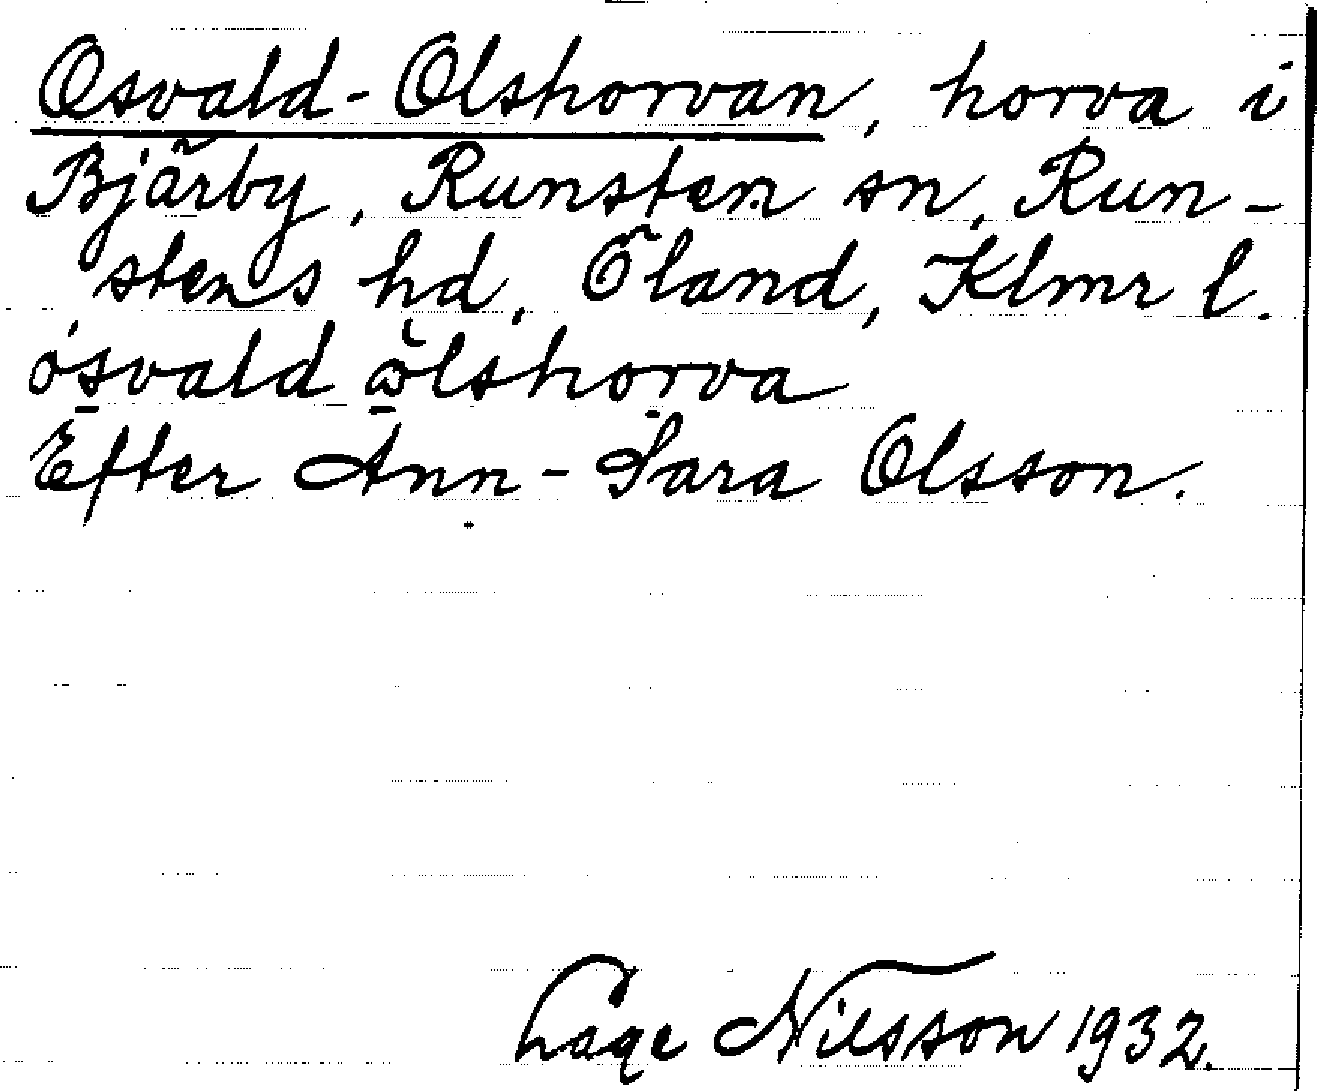 Osvald-Olshorvan, horva i
Bjärby, Runsten sn, Run-
stens hd, Öland, Klmr l.
ósvald òlshorva
Efter Ann-Sara Olsson.
Lage Nilsson 1932.